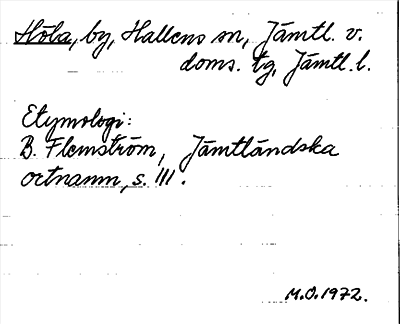 Höla, by, Hallens sn, Jämtl. v.
doms. tg, Jämtl. l.
Etymologi:
B. Flemström, Jämtländska
ortnamn, s. 111.
M.O. 1972.